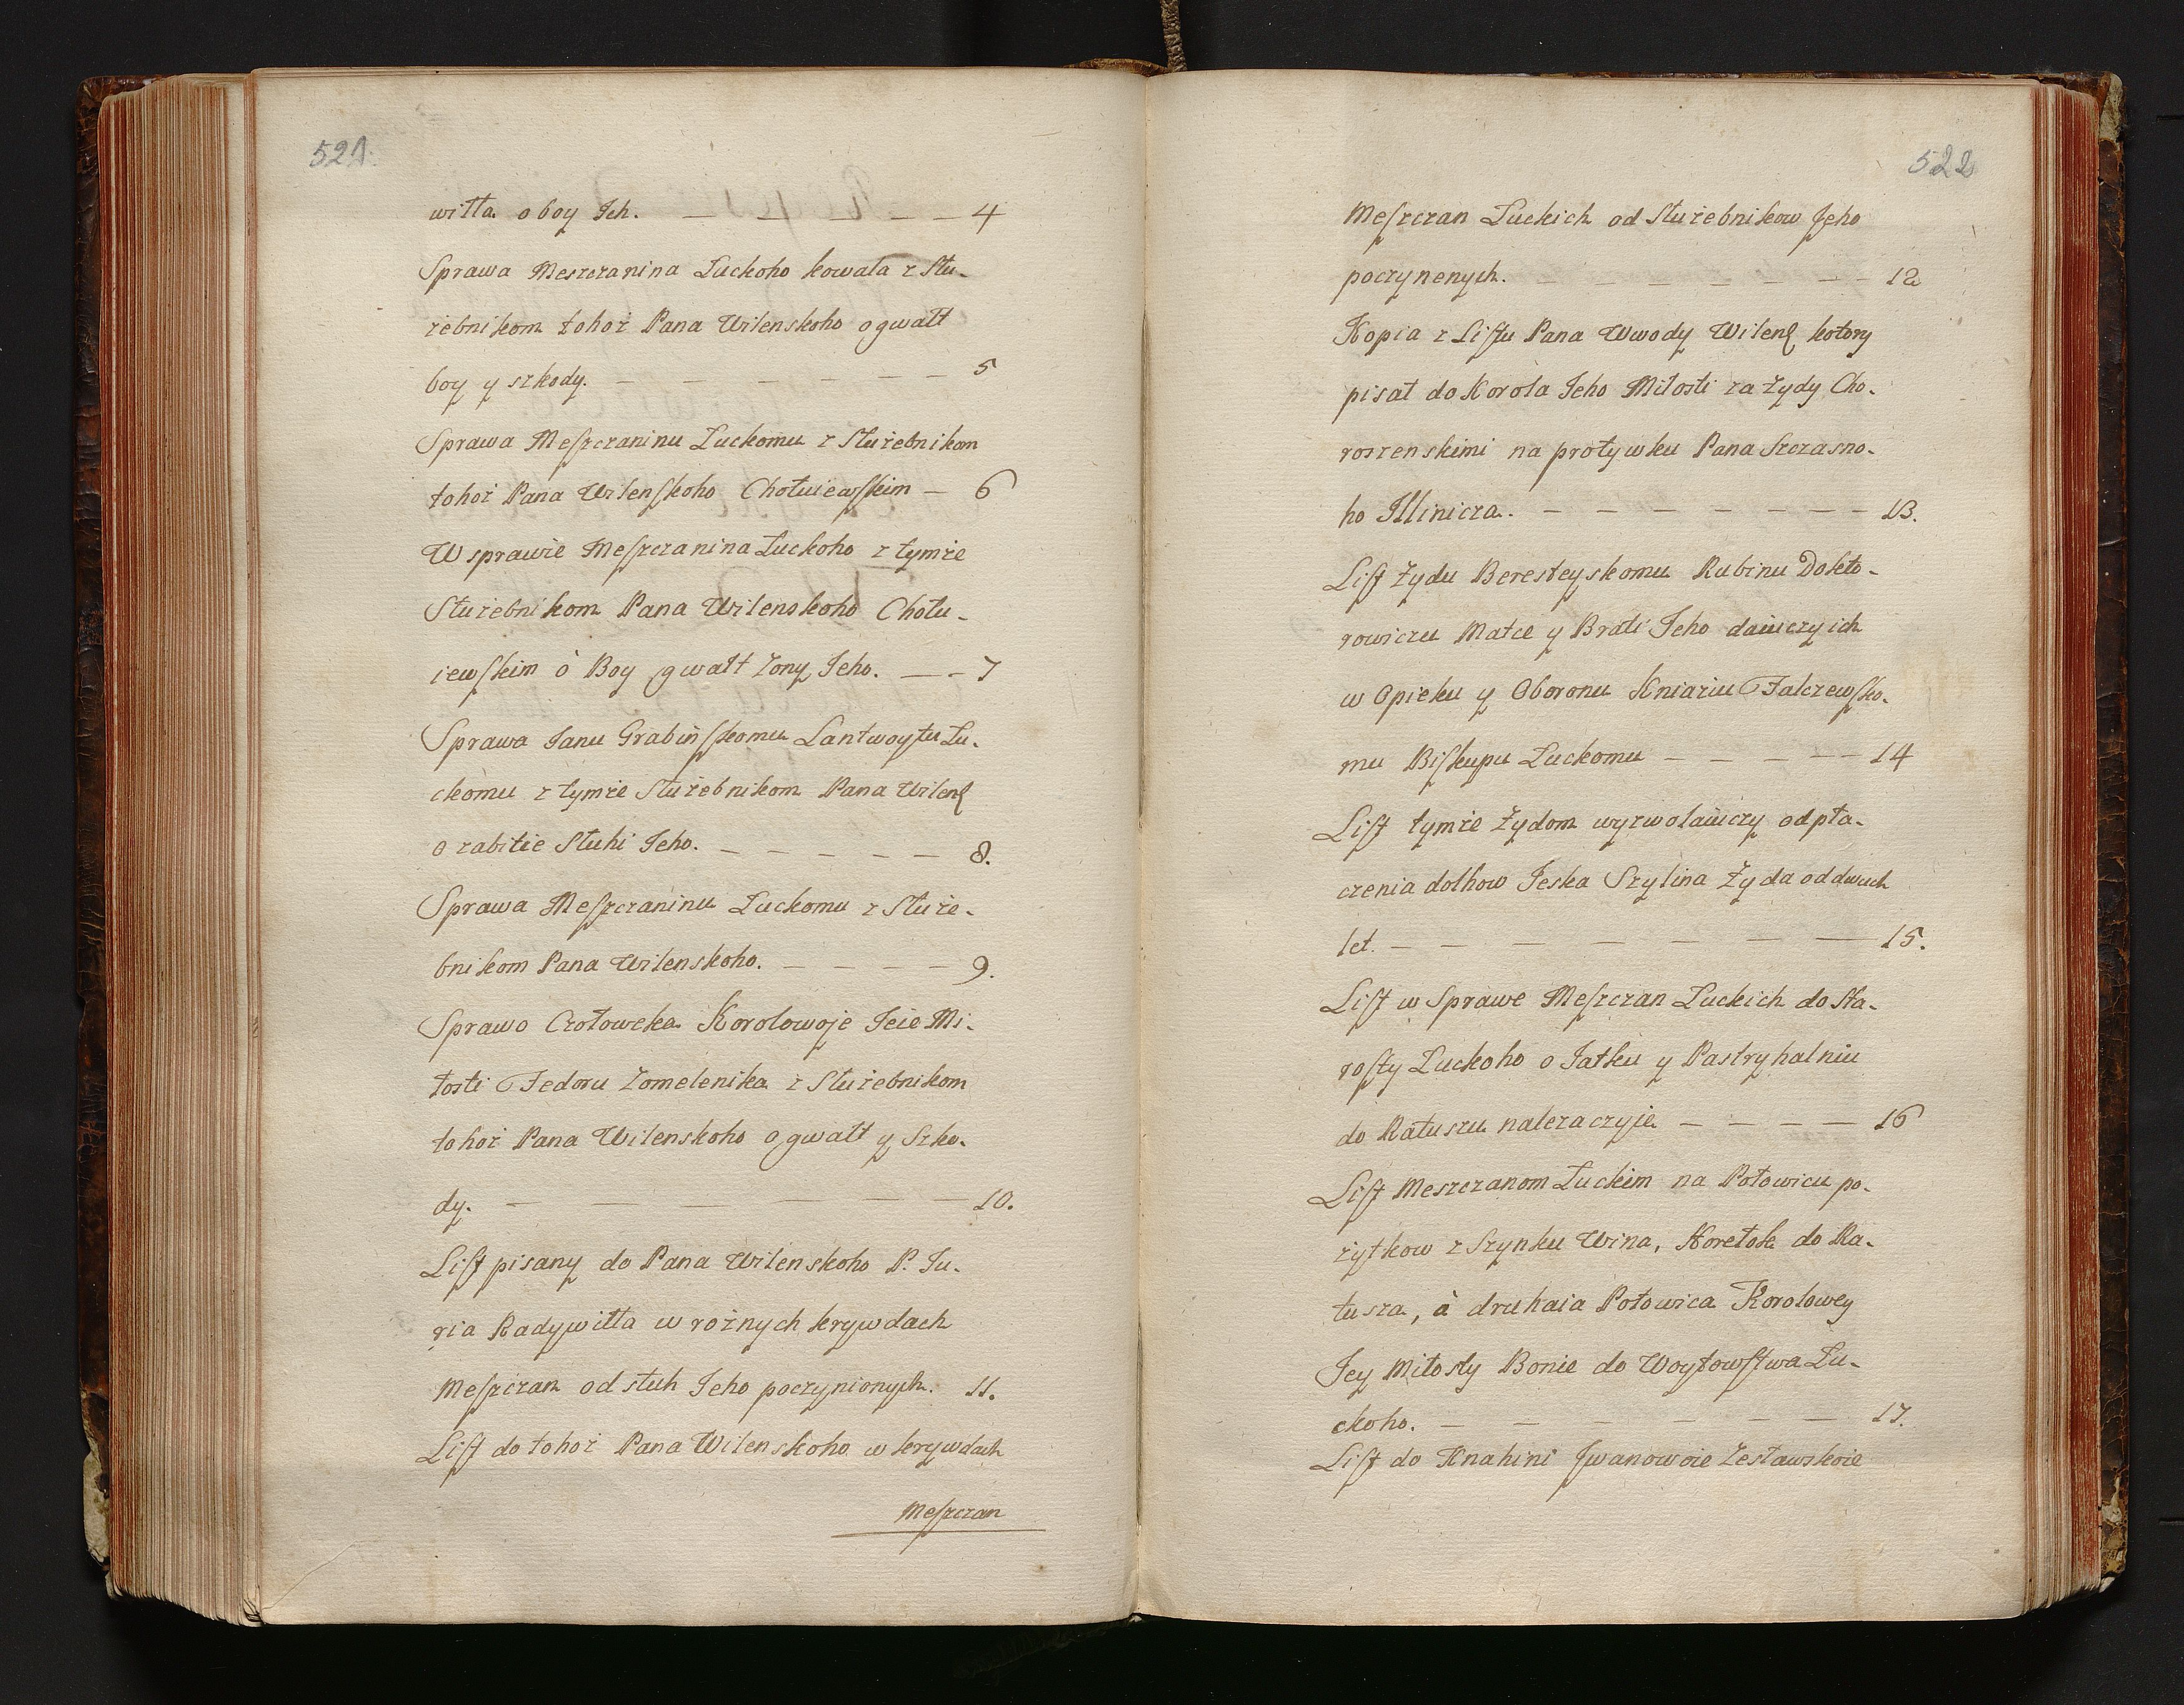 521.
wiłła o boy Ich. — — — — — 4
Sprawa Meszczanina Łuckoho kowala z Słu-
żebnikom tohoż Pana Wilenskoho o gwałt
boy y szkody. — — — — — — 5
Sprawa Meſzczaninu Łuckomu z Służebnikom
tohoż Pana Wilenſkoho Chotuiewſkim — 6
W sprawie Meſzczanina Łuckoho z tymże
Służebnikom Pana Wilenskoho Chotu-
iewſkim ò Boy gwałt Żony Jeho. — — 7
Sprawa Janu Grabinſkomu Lantwoytu Łu-
ckomu z tymże Służebnikom Pana Wilenſ
o zabitie Słuhi Jeho. — — — — — 8.
Sprawa Meſzczaninu Łuckomu z Służe-
bnikom Pana Wilenskoho. — — — — 9.
Sprawo Czołoweka Korolowoje Jeie Mi-
łosti Fedoru Żomelenika z Służebnikom
tohoż Pana Wilenskoho o gwałt y Szko-
dy. — — — — — — 10.
Liſt pisany do Pana Wilenskoho P. Ju-
ria Radywiłła w rożnych krywdach
Meſzczan od słuh Jeho poczynionych. 11.
Liſt do tohoż Pana Wilenskoho w krywdach
Meſzczan
522
Meſzczan Łuckich od Służebnikow Jeho
poczynenych. — — — — — — — 12
Kopia z Liſtu Pana Wwody Wilenſ kotory
pisał do Korola Jeho Miłosti za Żydy Cho-
roszenskimi na protywku Pana Szczasno-
ho Illinicza. — — — — — — — 13.
Liſt Żydu Beresteyskomu Rubinu Dokto-
rowiczu Matce y Brati Jeho daiuczy ich
w Opieku y Oboronu Kniaziu Falczewſko-
mu Biſkupu Łuckomu — — — — — 14
Liſt tymże Żydom wyzwolaiuczy od pła-
czenia dolhow Jeska Szylina Żyda od dwuch
let. — — — — — — — 15.
Liſt w Sprawe Meſzczan Łuckich do Sta-
roſty Łuckoho o Jatku y Pastryhalniu
do Ratuszu nalezaczyje — — — — 16
Liſt Meszczanom Łuckim na Połowicu po-
żytkow z Szynku Wina, Horełok do Ra-
tusza, à druhaia Połowica Korolowey
Jey Miłosty Bonie do Woytowſtwa Łu-
ckoho. — — — — — — 17.
Liſt do Knahini Jwanowoie Zesławskoie